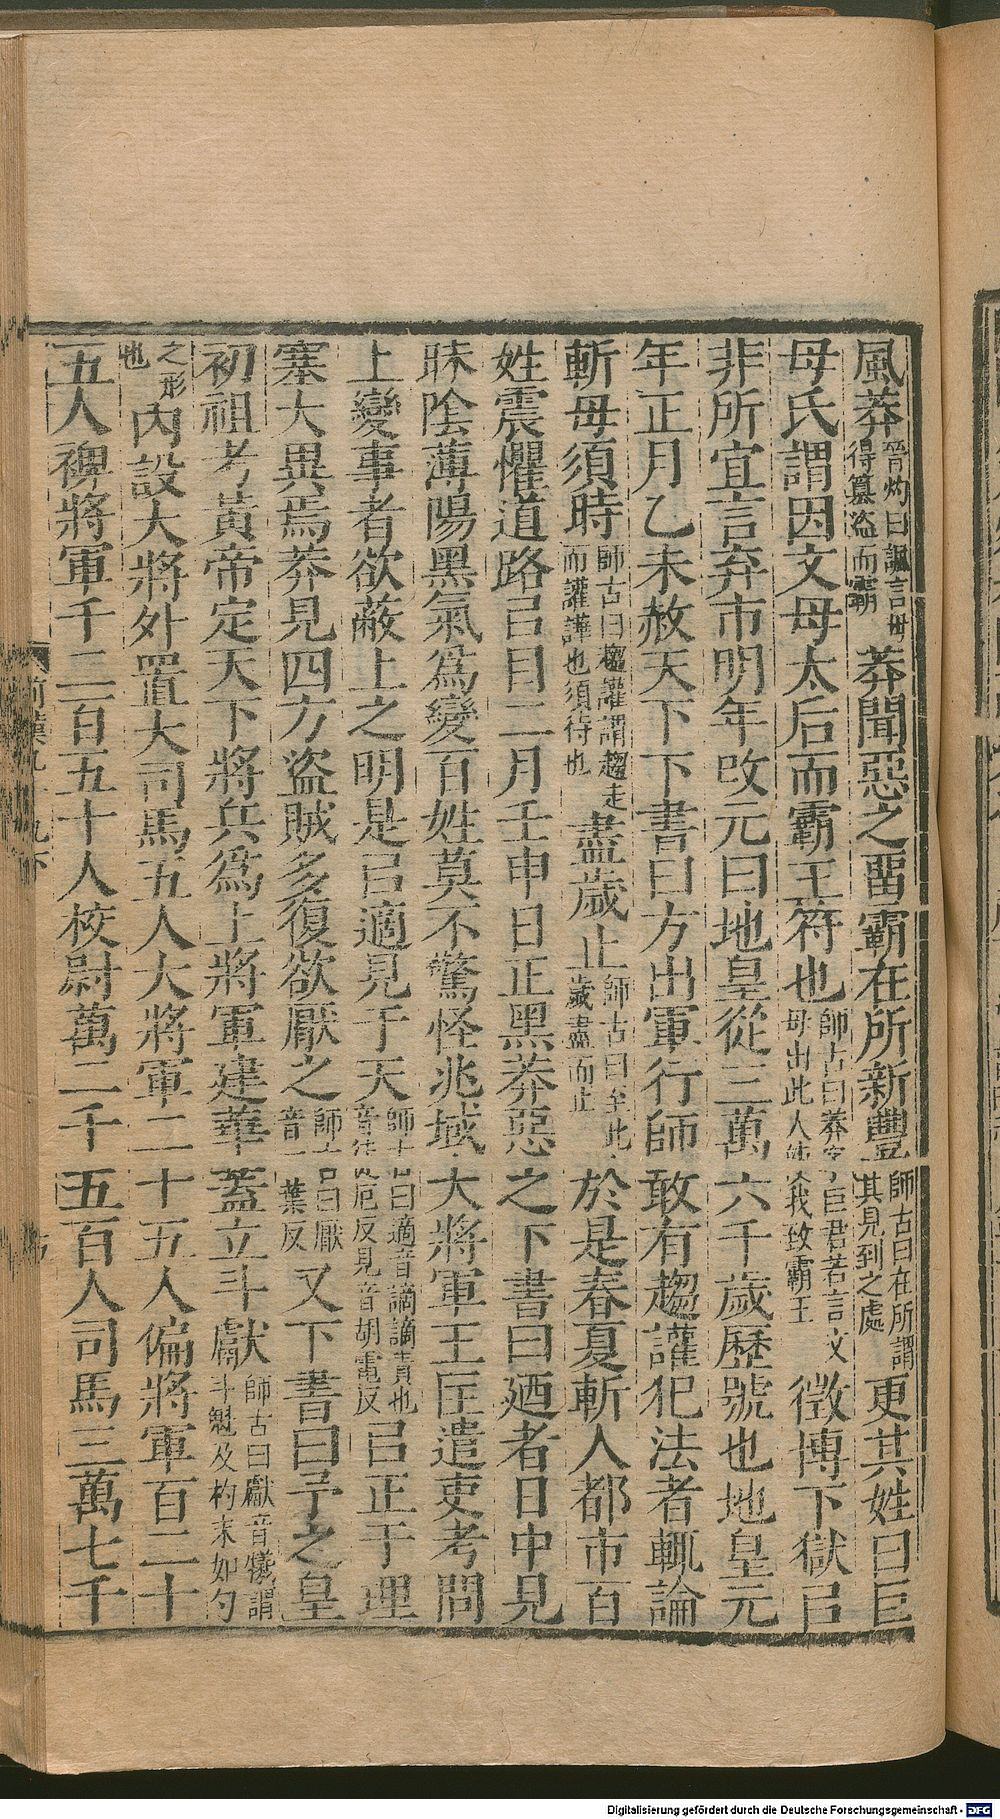 風莽晉灼曰諷言毋得篡盜而霸莽聞惡之畱霸在所新豐師古曰在所謂其見到之處更其姓曰巨
母氏謂因文母太后而霸王符也師古曰莽字巨君若言文母出此人使我致霸王徵博下獄㠯
非所宜言弃市明年改元曰地皇從三萬六千歲歷號也地皇元
年正月乙未赦天下下書曰方出軍行師敢有趨讙犯法者輒論
斬毋須時師古曰趨讙謂趨走而讙譁也須待也盡歲止師古曰至此歲盡而止於是春夏斬人都市百
姓震懼道路㠯目二月壬申日正黑莽惡之下書曰廼者日中見
昧陰薄陽黑氣爲變百姓莫不驚怪兆域大將軍王匡遣吏考問
上變事者欲蔽上之明是㠯適見于天師古曰適音謫謫責也音徒厄反見音胡電反㠯正于理
塞大異焉莽見四方盜賊多復欲厭之師古曰厭音一葉反又下書曰予之皇
初祖考黃帝定天下將兵爲上將軍建華蓋立斗獻師古曰獻音犧謂斗魁及杓末如勺
之形也內設大將外置大司馬五人大將軍二十五人偏將軍百二十
五人裨將軍千二百五十人校尉萬二千五百人司馬三萬七千
前漢九十九下
Digitalisierung gefördert durch die Deutsche Forschungsgemeinschaft - DFG